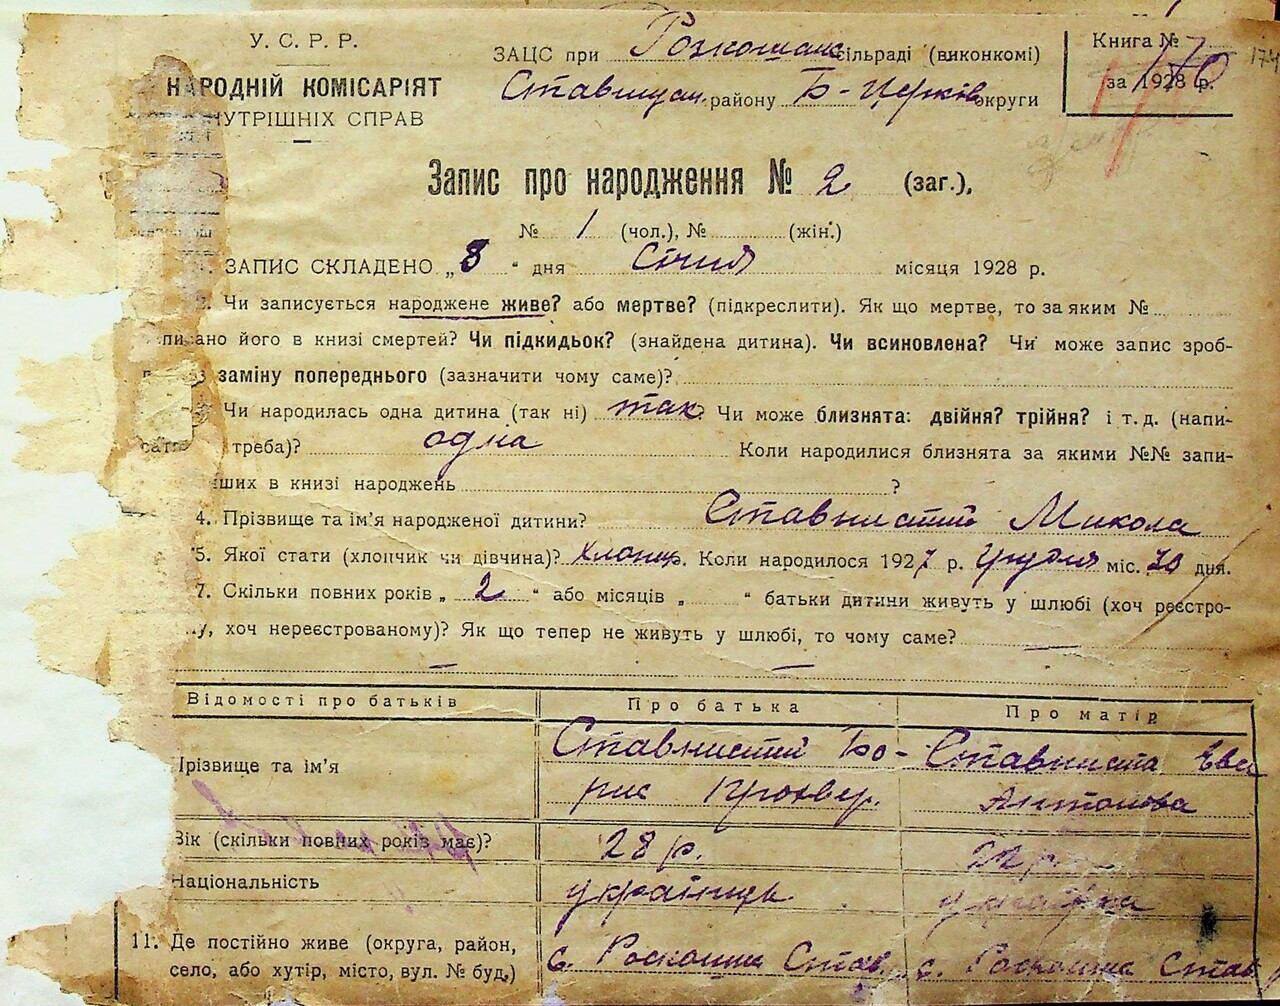 У. С. Р. Р.
НАРОДНІЙ КОМІСАРІЯТ
НУТРІШНІХ СПРАВ
ЗАЦС при Розкошан сільраді (виконкомі)
Ставищан. району Б-Церків округи
Книга №
за 1928 р.
170
174
Запис про народження № 2 (заг.),
№ 1 (чол.), № (жін.)
ЗАПИС СКЛАДЕНО „8“ дня Січня місяця 1928 р.
Чи записується народжене живе? або мертве? (підкреслити). Як що мертве, то за яким №
писано його в книзі смертей? Чи підкидьок? (знайдена дитина). Чи всиновлена? Чи може запис зроб-
заміну попереднього (зазначити чому саме)?
Чи народилась одна дитина (так ні) так. Чи може близнята: двійня? трійня? і т. д. (напи-
сати треба)? одна Коли народилися близнята за якими №№ запи-
ших в книзі народжень ?
4. Прізвище та ім’я народженої дитини? Ставнистий Микола
5. Якої стати (хлопчик чи дівчина)? Хлопць. Коли народилося 1927 р. Грудня міс. 30 дня.
7. Скільки повних років „ 2 “ або місяців „ “ батьки дитини живуть у шлюбі (хоч реєстро-
му, хоч нереєстрованому)? Як що тепер не живуть у шлюбі, то чому саме? —
— —
Відомості про батьків Про батька Про матір
Прізвище та ім’я Ставнистий Бо- Ставниста Ева
рис Прохвер. Антонова
Вік (скільки повних років має)? 28 р. 22 р.
Національність українць українка
11. Де постійно живе (округа, район,
село, або хутір, місто, вул. № буд.) с. Роскошна Став. с. Роскошна Став